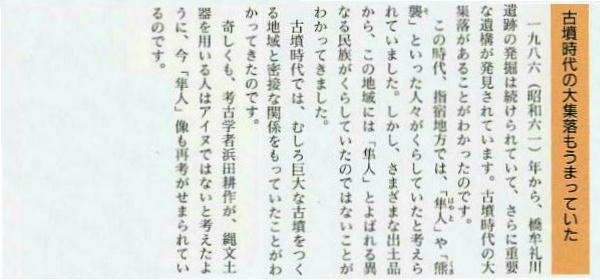 古墳時代の大集落もうまっていた
一九八六（昭和六一）年から、橋牟礼川
遺跡の発掘は続けられていて、さらに重要
な遺構が発見されています。古墳時代の大
集落があることがわかったのです。
この時代、指宿地方では、「隼人」や「熊
襲」といった人々がくらしていたと考えら
れていました。しかし、さまざまな出土品
から、この地域には「隼人」とよばれる異
なる民族がくらしていたのではないことが
わかってきました。
古墳時代では、むしろ巨大な古墳をつく
る地域と密接な関係をもっていたことがわ
かってきたのです。
奇しくも、考古学者浜田耕作が、縄文土
器を用いる人はアイヌではないと考えたよ
うに、今「隼人」像も再考がせまられてい
るのです。